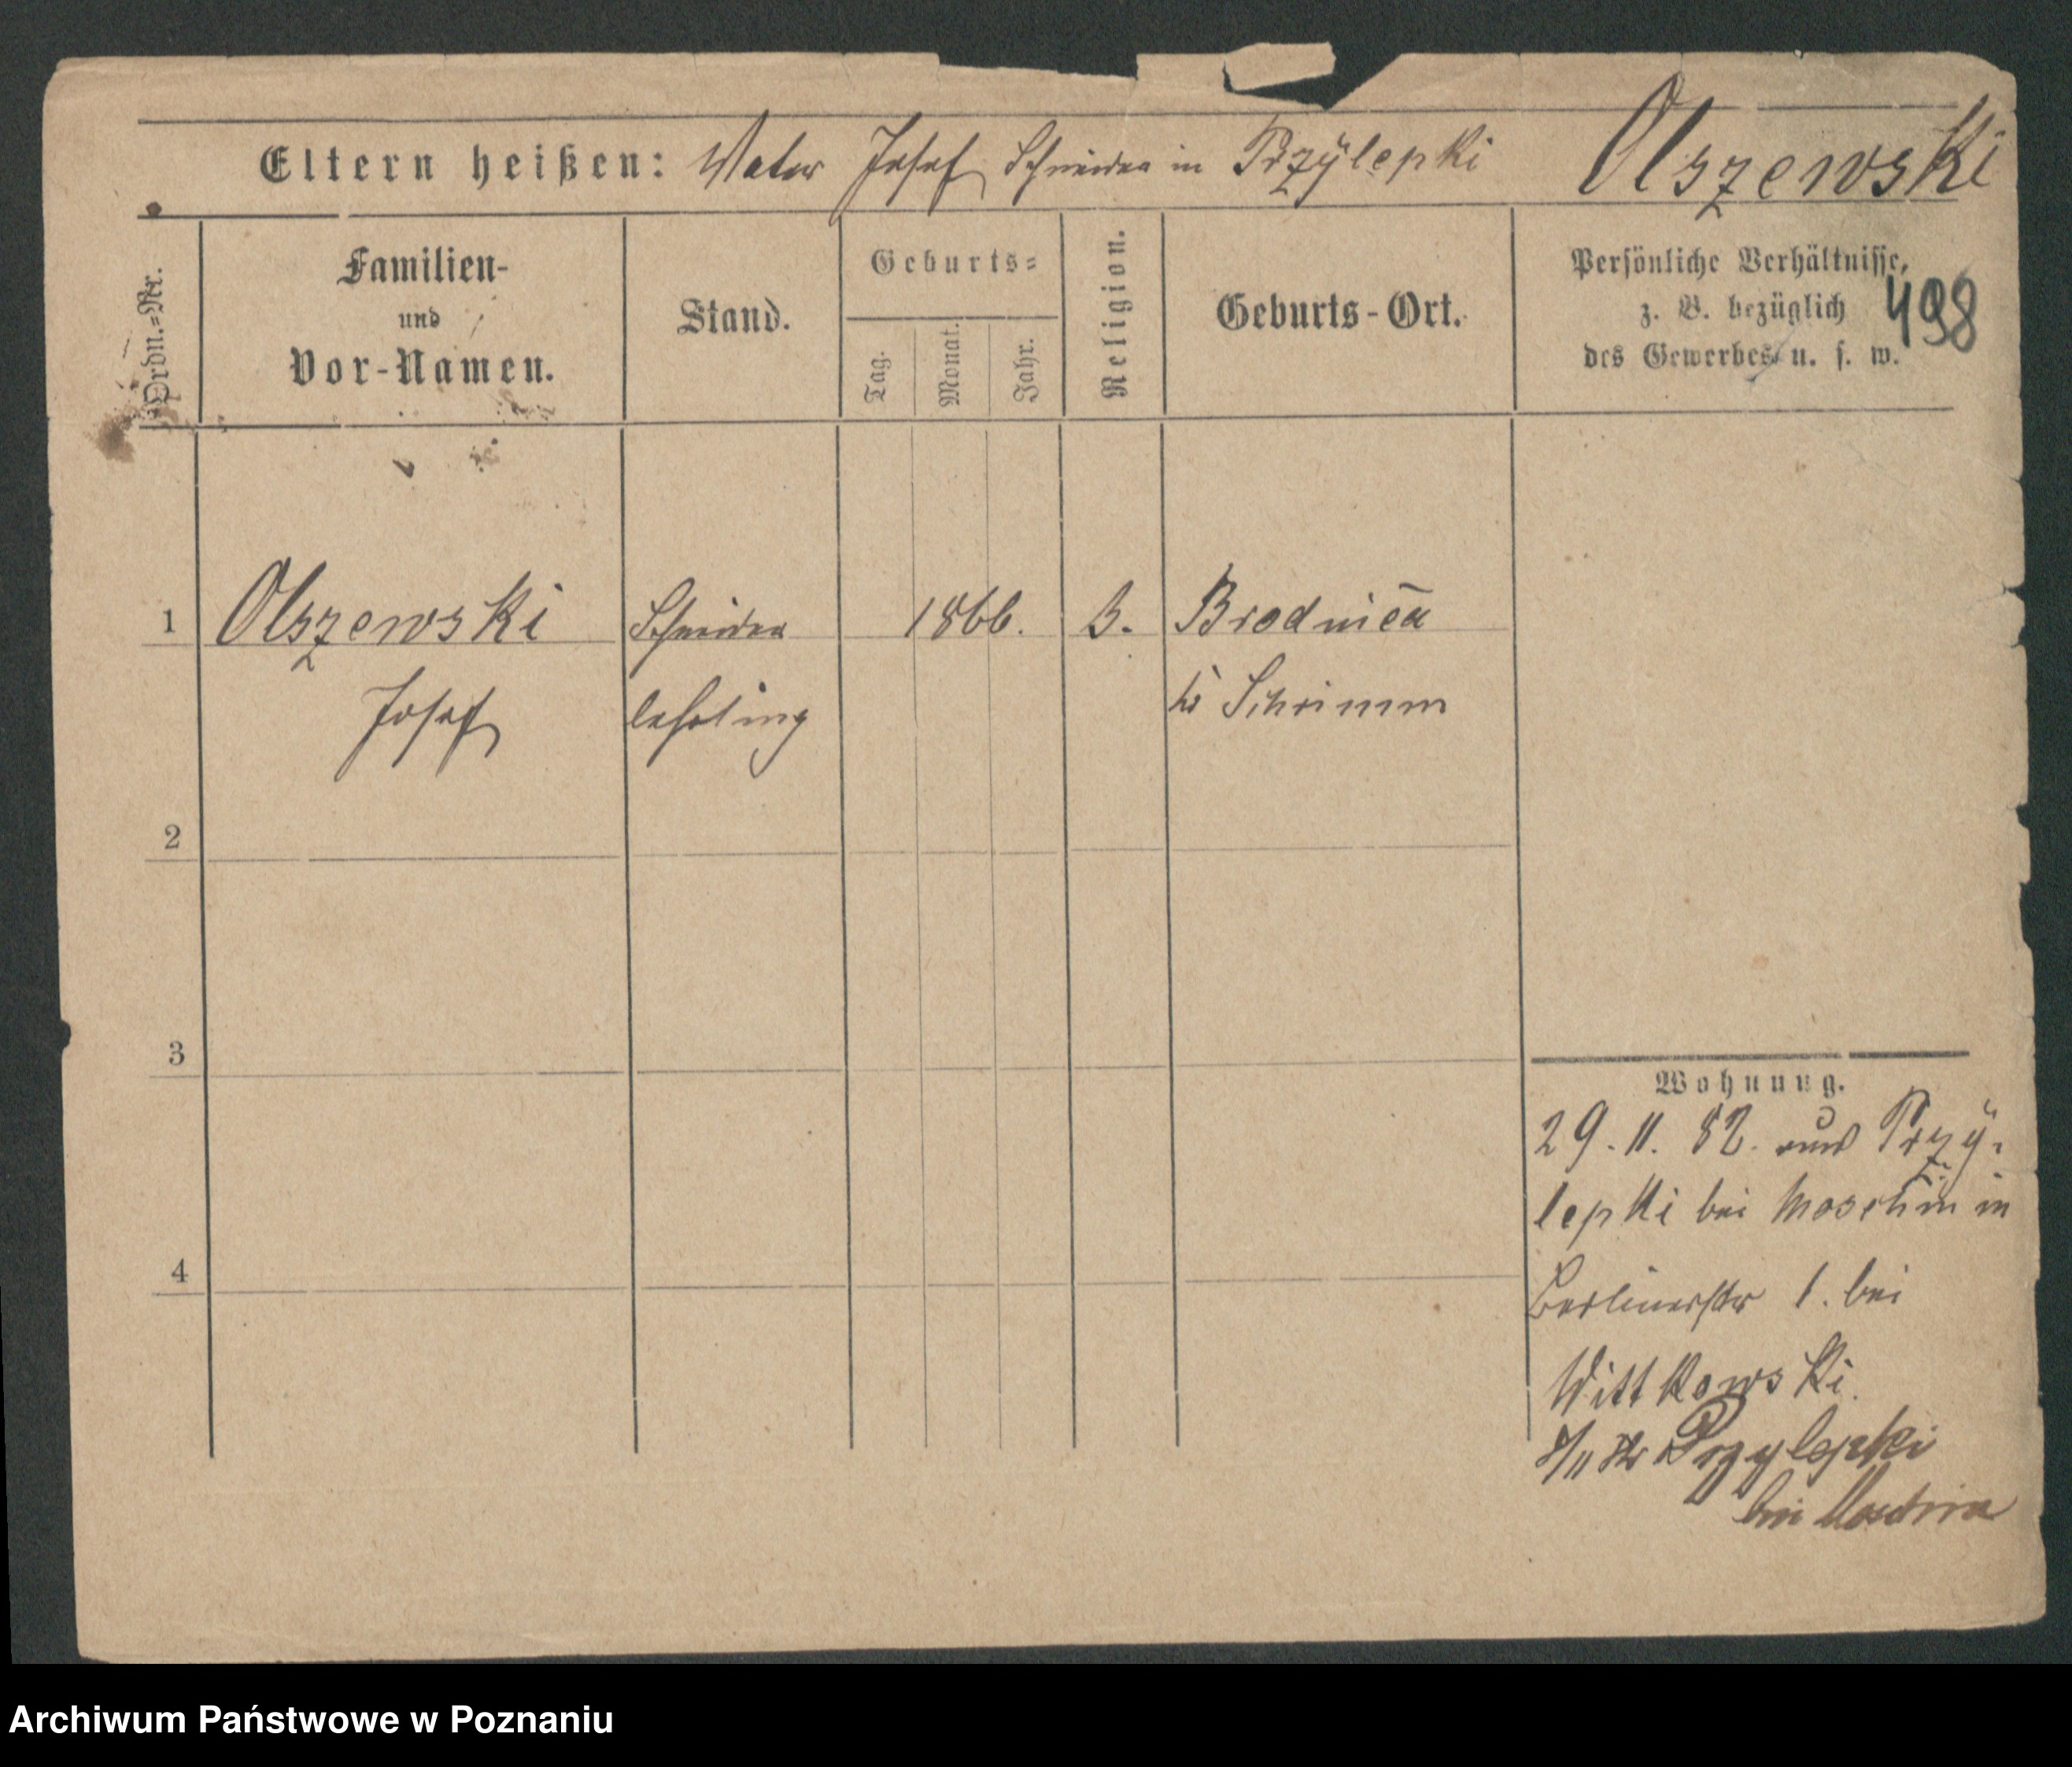 Eltern heißen: Vater Josef Schneider in Przÿlepki Olszewski
Ordn.=Nr.
Familien-
und
Vor-Namen.
Stand.
Geburts=
Tag.
Monat.
Jahr.
Religion.
Geburts-Ort.
Persönliche Verhältnisse,
z. B. bezüglich
des Gewerbes u. s. w.
498
1 Olszewski Schneider 1866. Brodnica
Josef lehrling Schrimm
2
3
4
Wohnung.
29. 11. 82. aus Przÿ-
lepki bei Moschin in
Berlinerstr 1. bei
Wittkowski.
Przylepki
bei Moschin
Archiwum Państwowe w Poznaniu